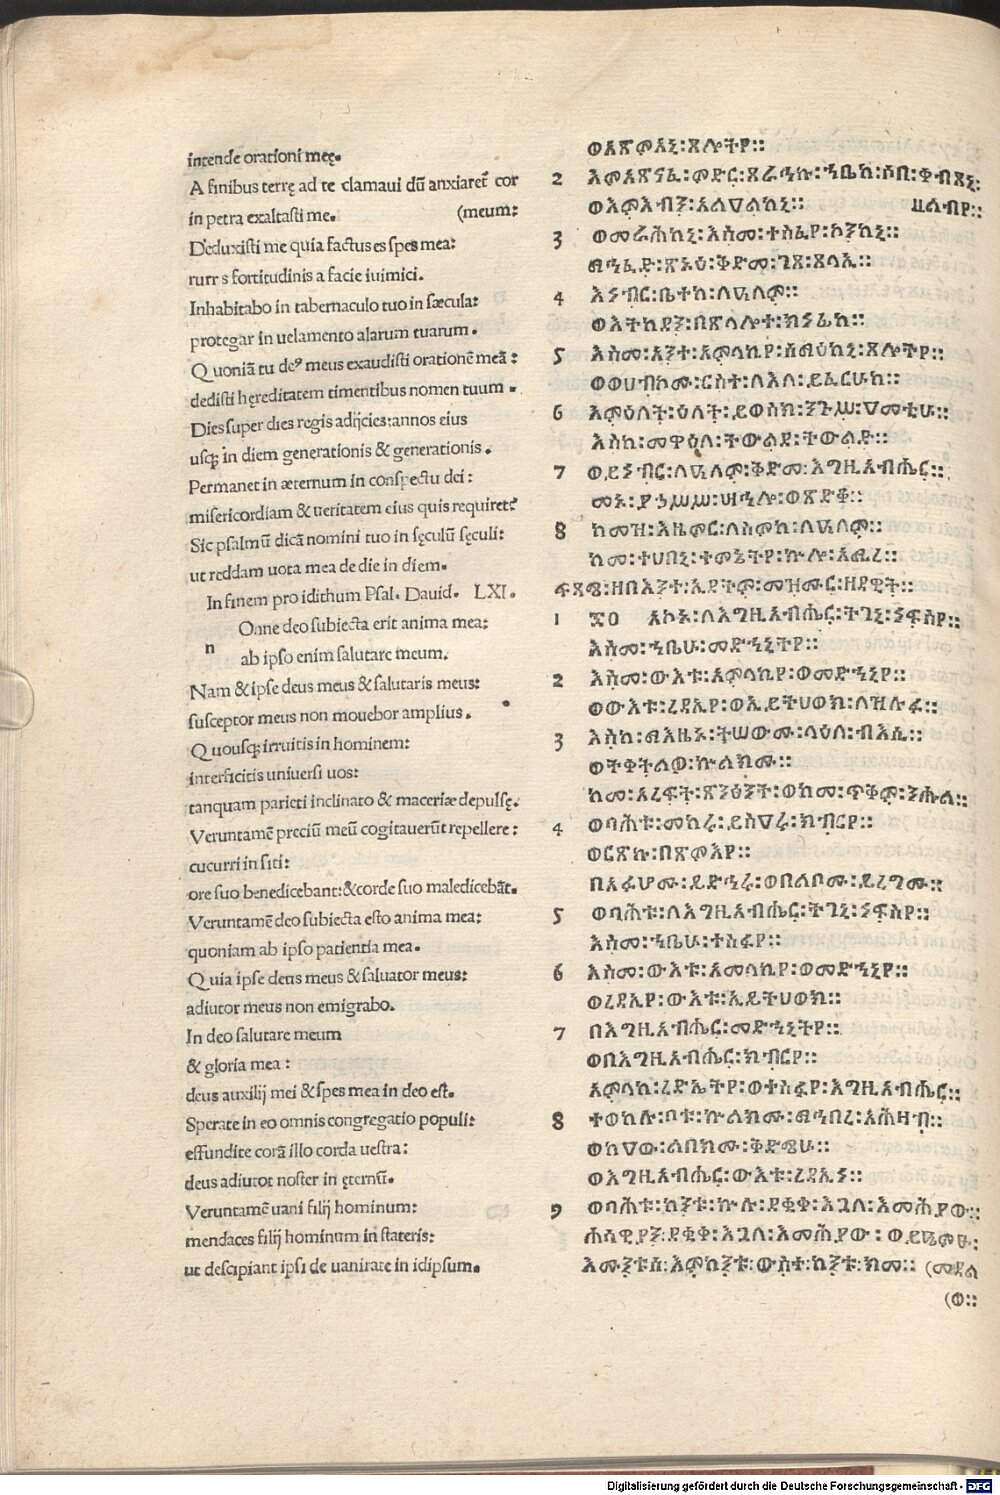 intende orationi meę.
A finibus terrę ad te clamaui dũ anxiaret᷑ cor
in petra exaltasti me. (meum:
Deduxisti me quia factus es spes mea:
turr s fortitudinis a facie inimici.
Inhabitabo in tabernaculo tuo in sæcula:
protegar in uelamento alarum tuarum.
Quoniã tu deꝰ meus exaudisti orationẽ meã:
dedisti hęreditatem timentibus nomen tuum.
Dies super dies regis adijcies: annos eius
usq; in diem generationis & generationis.
Permanet in æternum in conspectu dei:
misericordiam & ueritatem eius quis requiret?
Sic psalmũ dicã nomini tuo in sęculũ sęculi:
ut reddam uota mea de die in diem.
In finem pro idithum Psal. Dauid. LXI.
Onne deo subiecta erit anima mea:
n
ab ipso enim salutare meum.
Nam & ipse deus meus & salutaris meus:
susceptor meus non mouebor amplius.
Quousq; irruitis in hominem:
interficitis uniuersi uos:
tanquam parieti inclinato & maceriæ depulsę.
Veruntamẽ preciũ meũ cogitauerũt repellere:
cucurri in siti:
ore suo benedicebant: & corde suo maledicebãt.
Veruntamẽ deo subiecta esto anima mea:
quoniam ab ipso patientia mea.
Quia ipse deus meus & saluator meus:
adiutor meus non emigrabo.
In deo salutare meum
& gloria mea:
deus auxilij mei & spes mea in deo est.
Sperate in eo omnis congregatio populi:
effundite corã illo corda uestra:
deus adiutor noster in ęternũ.
Veruntamẽ uani filij hominum:
mendaces filij hominum in stateris:
ut decipiant ipsi de uanitate in idipsum.
ወአፅምአኒ፡ጸሎትየ።
2 እምአጽናፈ፡ምድር፡ጸራኅኩ፡ኀቤከ፡ሶበ፡ቀብጸኒ፡
ወእምእብን፡አልዐልከኒ። ልብየ።
3 ወመራሕከኒ፡እስመ፡ተስፋየ፡ኮንከኒ።
ማኅፈድ፡ጽኑዕ፡ቅድመ፡ገጸ፡ጸላኢ።
4 እነብር፡ቤተከ፡ለዓለም።
ወእትከደን፡በጽላሎተ፡ክነፊከ።
5 እስመ፡አንተ፡አምላኪየ፡ሰማዕከኒ፡ጸሎትየ።
ወወሀብኮሙ፡ርስተ፡ለእለ፡ይፈርሁከ።
6 እምዕለት፡ዕለት፡ይወስክ፡ንጉሥ፡ዐመቲሁ።
እስከ፡መዋዕለ፡ትውልደ፡ትውልድ።
7 ወይነብር፡ለዓለም፡ቅድመ፡እግዚአብሔር።
መኑ፡የኃሥሥ፡ሣህሎ፡ወጽድቆ።
8 ከመዝ፡እዜምር፡ለስምከ፡ለዓለም።
ከመ፡ተሀበኒ፡ተምኔትየ፡ኵሎ፡አሚረ።
ፍጻሜ፡ዘበእንተ፡ኢዶትም፡መዝሙር፡ዘዳዊት።
1 አኮኑ፡ለእግዚአብሔር፡ትገኒ፡ነፍስየ።
እስመ፡ኀቤሁ፡መድኀኒትየ።
2 እስመ፡ውእቱ፡አምላኪየ፡ወመድኀኒየ።
ወውእቱ፡ረዳኢየ፡ወኢይትሀወክ፡ለዝሉፉ።
3 እስከ፡ማእዜኑ፡ትቀውሙ፡ላዕለ፡ብእሲ።
ወትቀትልዎ፡ኵልክሙ።
ከመ፡አረፍት፡ጽንዕት፡ወከመ፡ጥቅም፡ንሑል።
4 ወባሕቱ፡መከሩ፡ይስዐሩ፡ክብርየ።
ወርጽኩ፡በጽምእየ።
በአፉሆሙ፡ይድኅሩ፡ወበልቦሙ፡ይረግሙ።
5 ወባሕቱ፡ለእግዚአብሔር፡ትገኒ፡ነፍስየ።
እስመ፡ኀቤሁ፡ተስፋየ።
6 እስመ፡ውእቱ፡አምላኪየ፡ወመድኀኒየ።
ወረዳኢየ፡ውእቱ፡ኢይትሀወክ።
7 በእግዚአብሔር፡መድኀኒትየ።
ወበእግዚአብሔር፡ክብርየ።
አምላከ፡ረድኤትየ፡ወተስፋየ፡እግዚአብሔር።
8 ተወከሉ፡ቦቱ፡ኵልክሙ፡ማኅበረ፡አሕዛብ።
ወከዐው፡ልበክሙ፡ቅድሜሁ።
ወእግዚአብሔር፡ውእቱ፡ረዳኢነ።
9 ወባሕቱ፡ከንቱ፡ኵሉ፡ደቂቀ፡እጓለ፡እመሕያው።
ሐሳዊያን፡ደቂቀ፡እጓለ፡እመሕያው፡ወይዔምፁ፡
እሙንቱሰ፡እምከንቱ፡ውስተ፡ከንቱ፡ክመ። (መዳል
(ው።
Digitalisierung gefördert durch die Deutsche Forschungsgemeinschaft - DFG